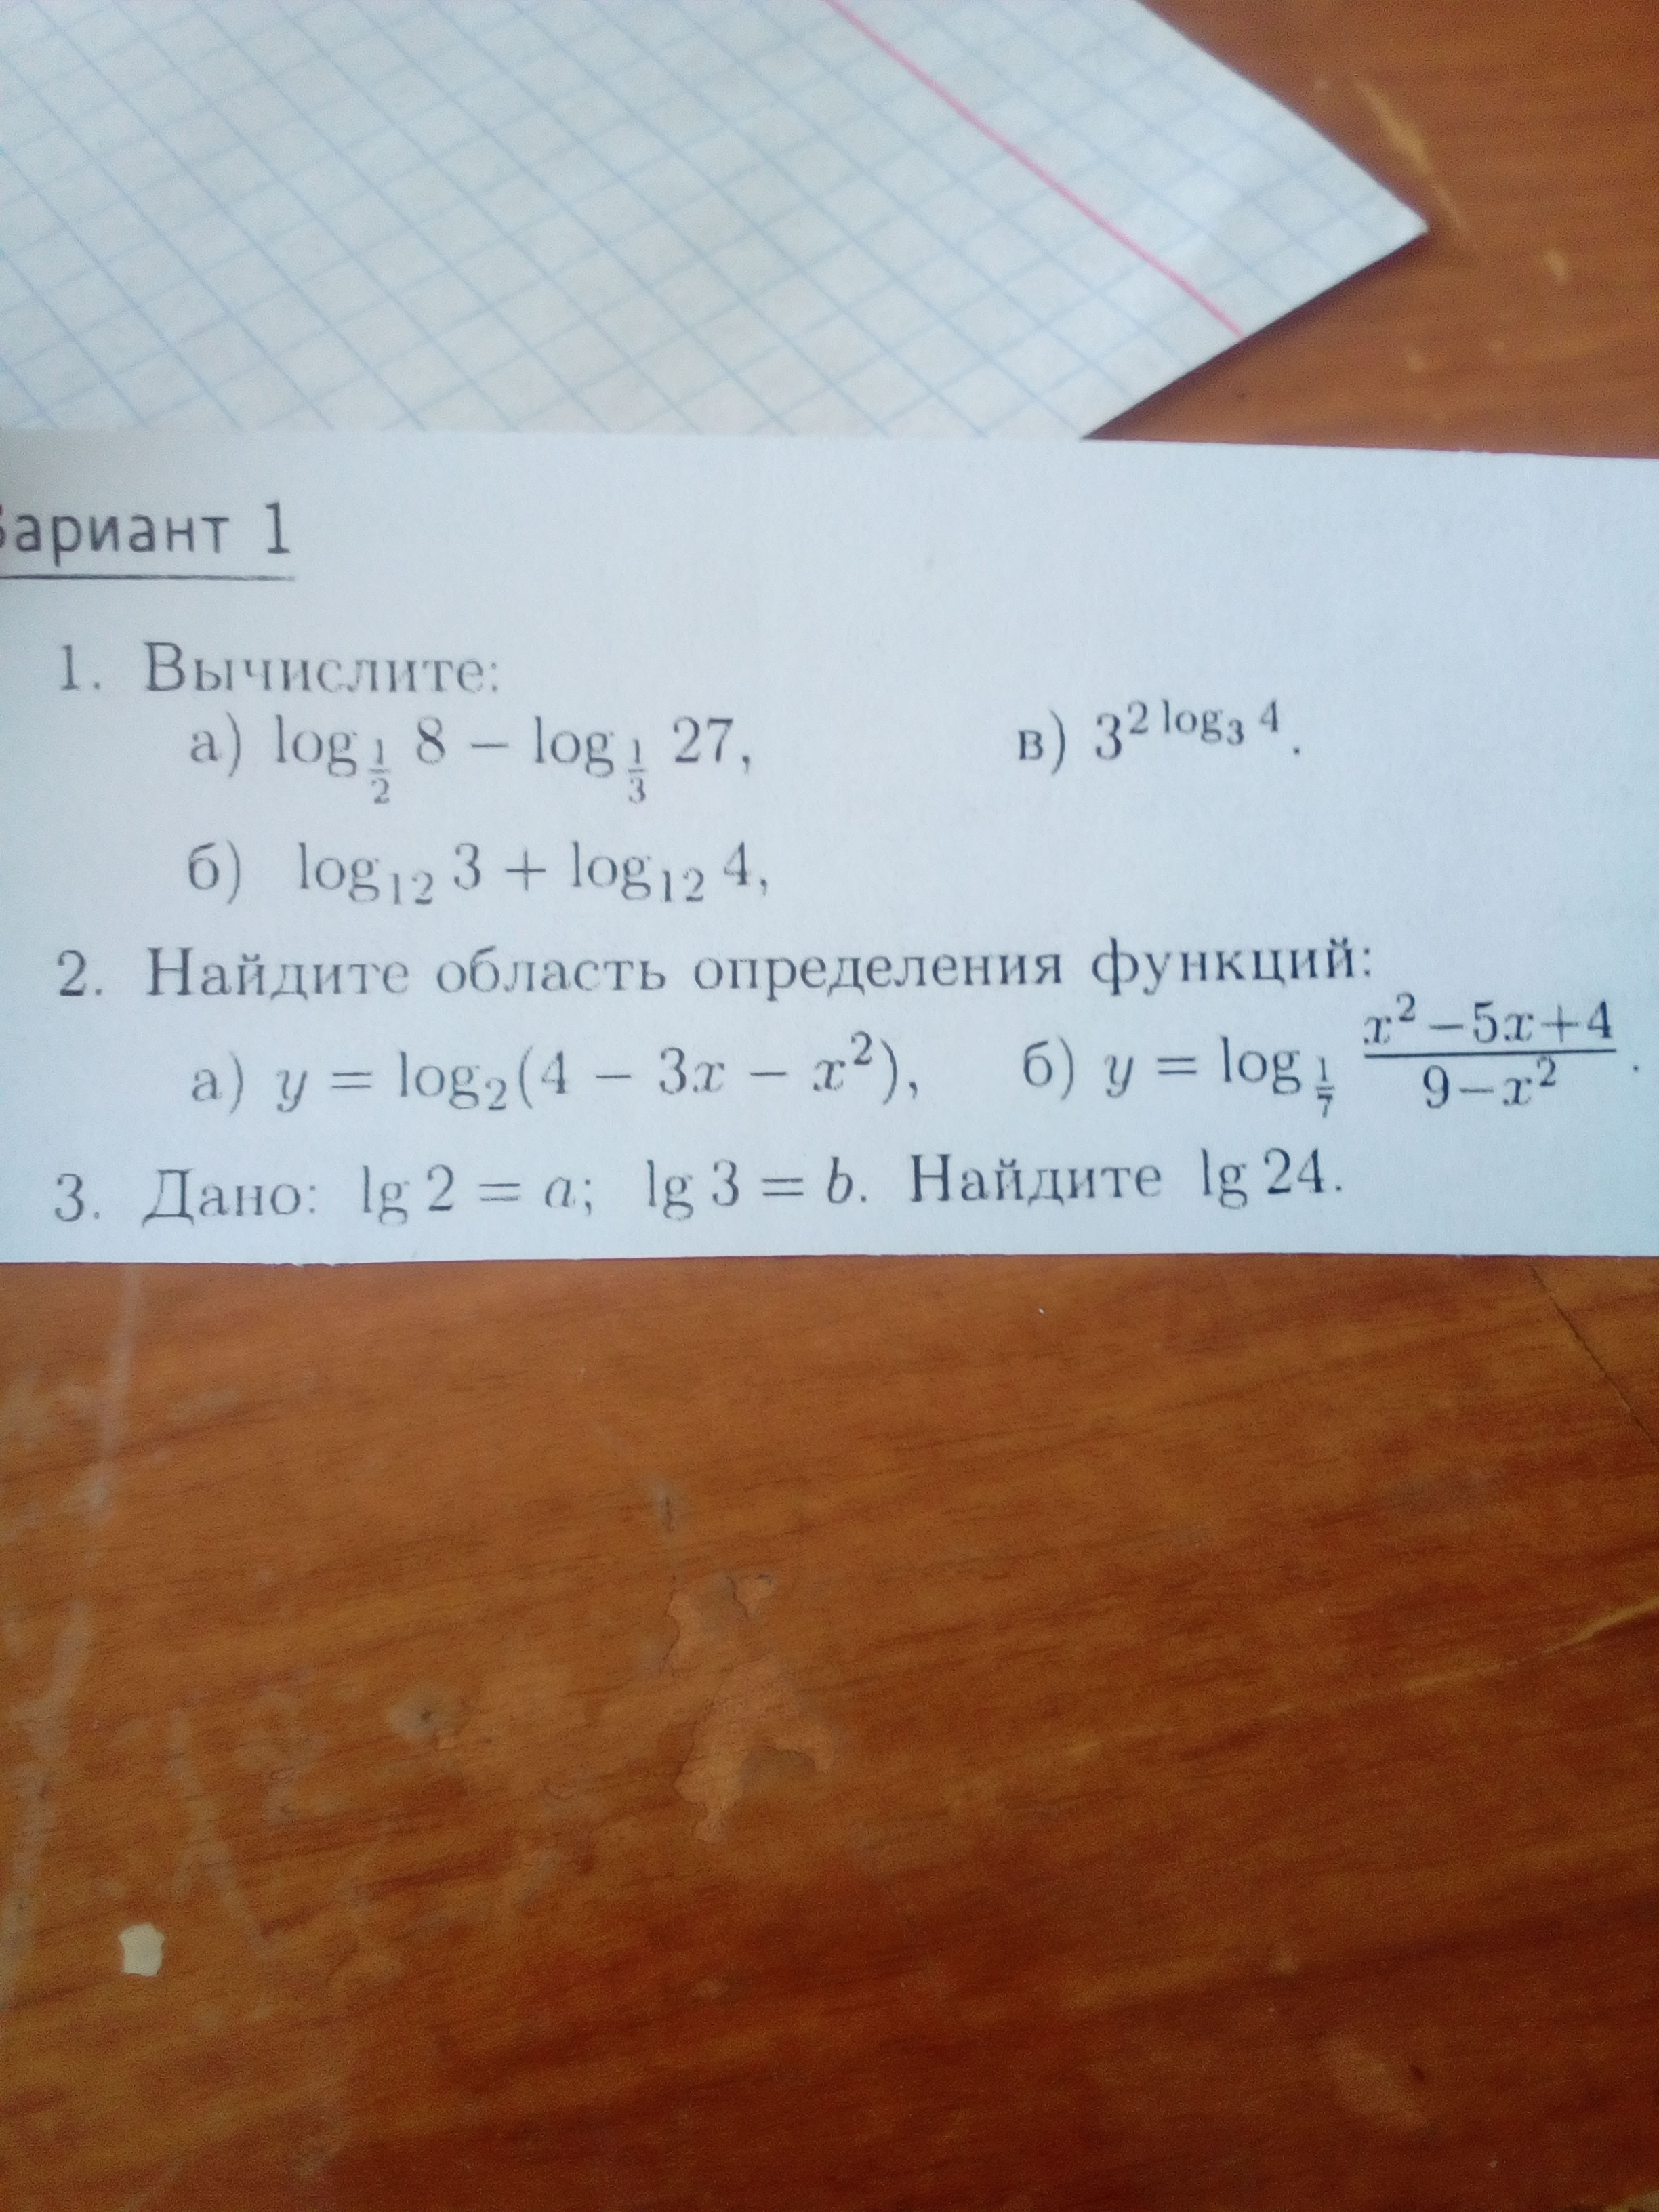 Вариант 1
1. Вычислите:
а) log_{\frac{1}{2}} 8 − log_{\frac{1}{3}} 27,
в) 3^{2 log_3 4}.
б) log_{12} 3 + log_{12} 4,
2. Найдите область определения функций:
а) y = log_2(4 − 3x − x^2),
б) y = log_{\frac{1}{7}} \frac{x^2−5x+4}{9−x^2}.
3. Дано: lg 2 = a; lg 3 = b. Найдите lg 24.